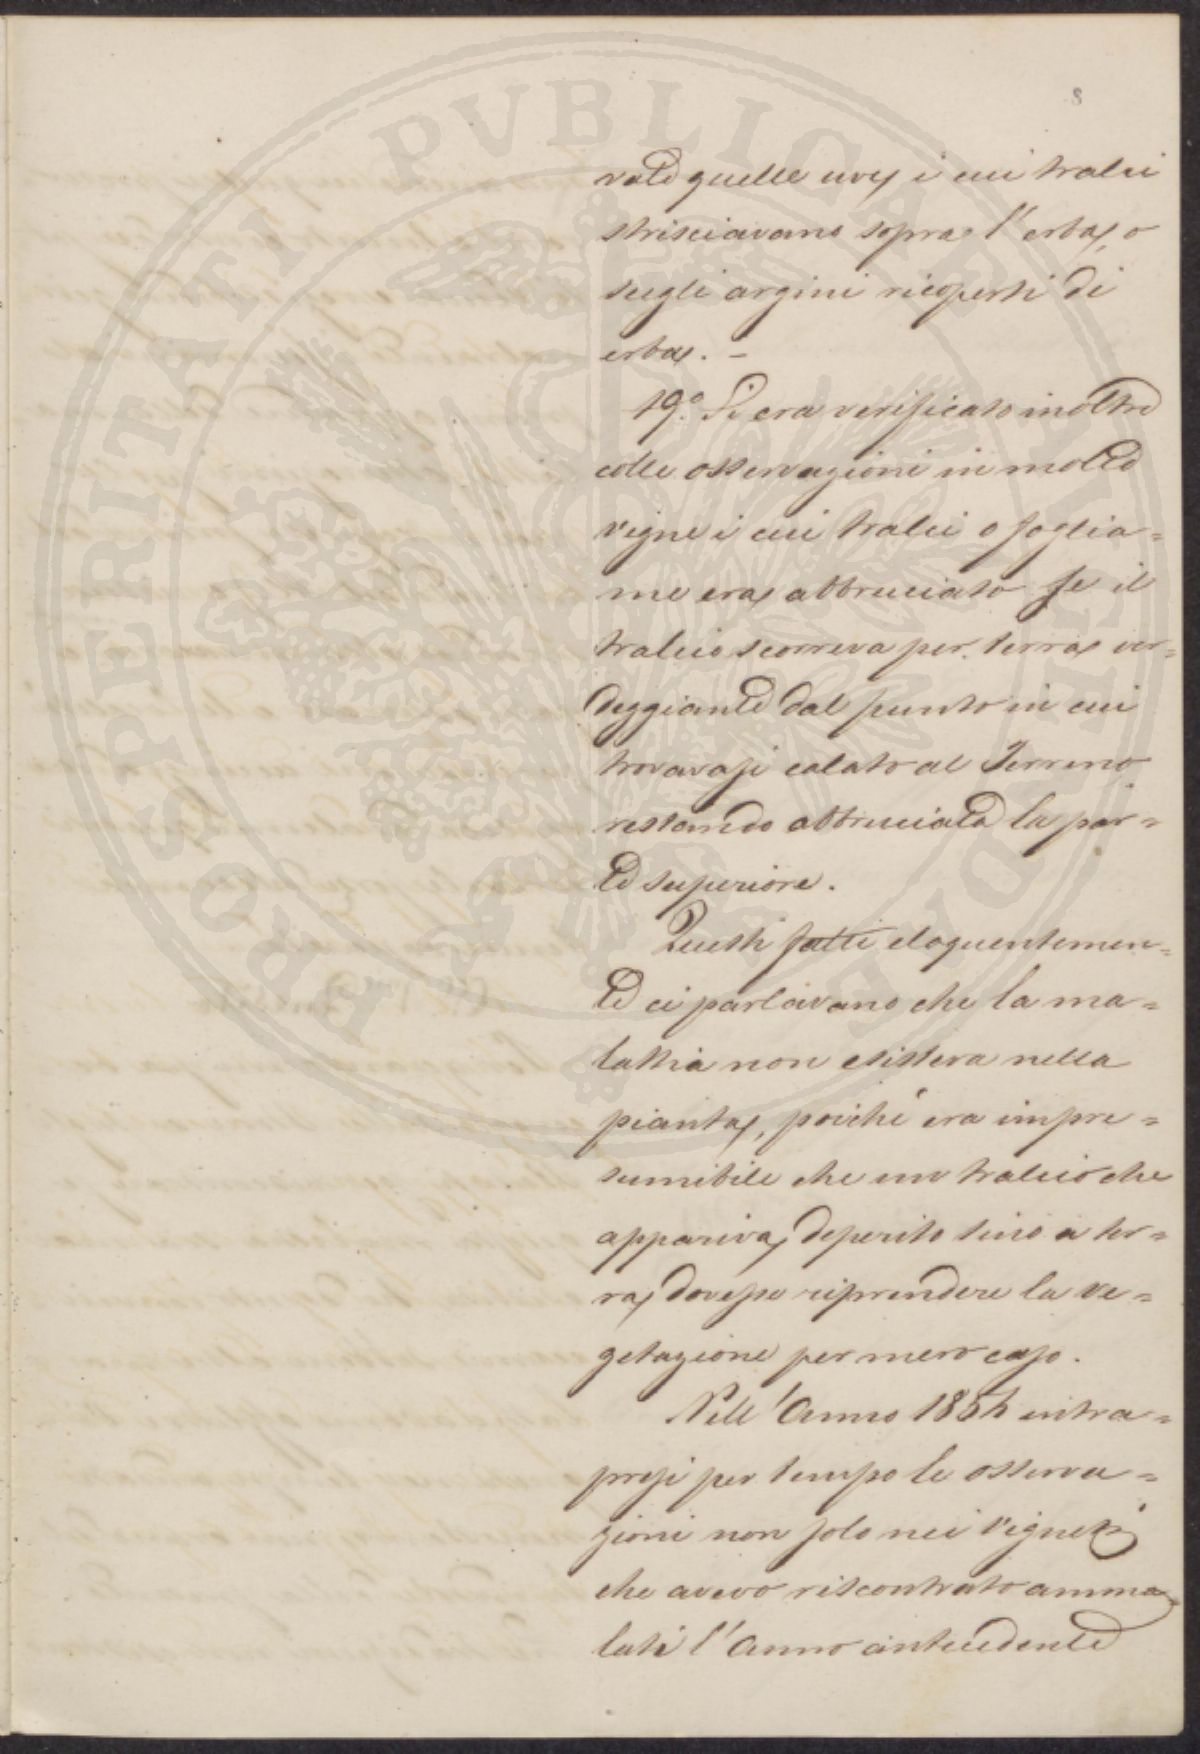 8
vate quelle uve i cui tralci
strisciavano sopra l'erba, o
sugli argini ricoperti di
erba. –
19.º Si era verificato inoltre
colle osservazioni in molte
vigne i cui tralci o foglia=
me era abbruciato se il
tralcio scorreva per terra ver=
deggiante dal punto in cui
trovavasi calato al Terreno
restando abbruciata la par=
te superiore.
Questi fatti eloquentemen=
te ci parlavano che la ma=
lattia non esisteva nella
pianta, poiché era impre=
sumibile che un tralcio che
appariva deperito sino a ter=
ra, dovesse riprendere la ve=
getazione per mero caso.
Nell'Anno 1854 intra=
presi per tempo le osserva=
zioni non solo nei Vigneti
che avevo riscontrato amma=
lati l'Anno antecedente
PROSPERITATI PVBLICAE